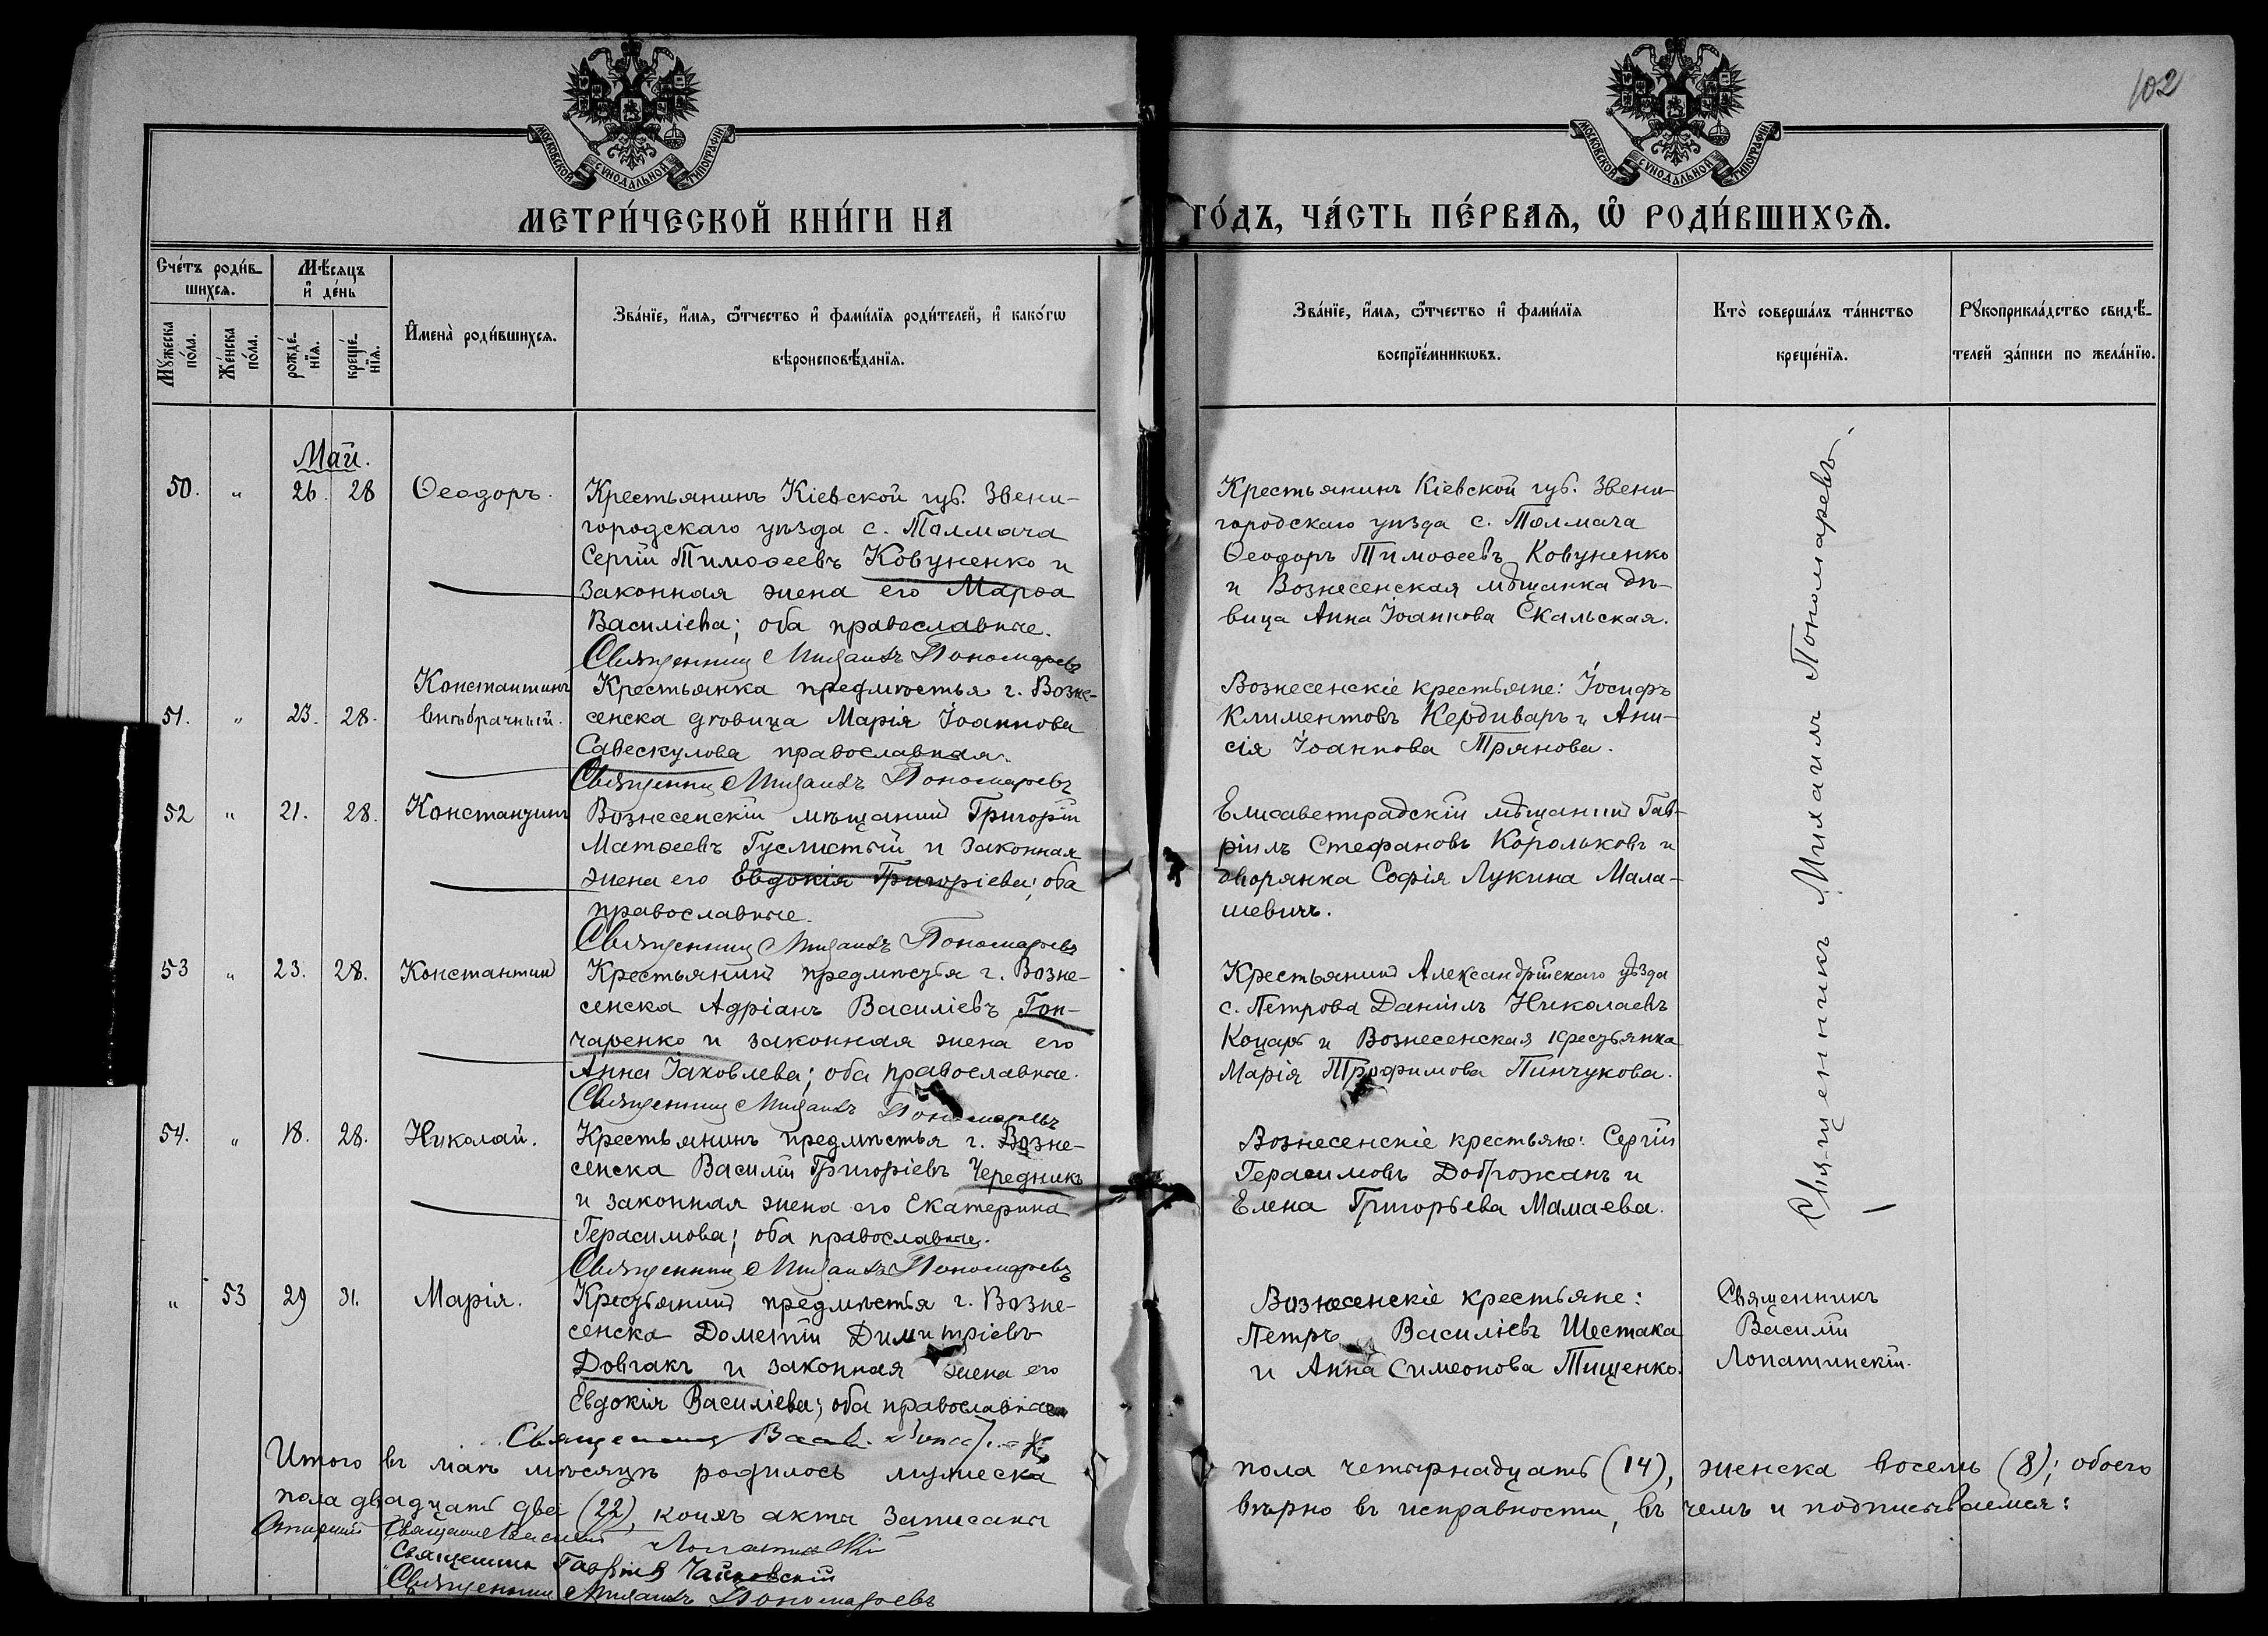 102
МОСКОВСКОЙ СѴНОДАЛЬНОЙ ТИПОГРАФІИ
МОСКОВСКОЙ СѴНОДАЛЬНОЙ ТИПОГРАФІИ
МЕТРИ́ЧЕСКОЙ КНИ́ГИ НА ГО́ДЪ, ЧА́СТЬ ПЕ́РВАѦ, Ѡ РОДИ́ВШИХСѦ.
Сче́тъ роди́в-
шихсѧ.
Мꙋ́жеска
по́ла.
Же́нска
по́ла.
Мѣ́сѧцъ
и҆ де́нь
рожде́-
нїѧ.
креще́-
нїѧ.
И҆мена̀ роди́вшихсѧ.
Зва́нїе, и҆́мѧ, ѻ҆́тчество и҆ фами́лїѧ роди́телей, и҆ како́гѡ
вѣроисповѣ́данїѧ.
Зва́нїе, и҆́мѧ, ѻ҆́тчество и҆ фами́лїѧ
воспрїе́мникѡвъ.
Кто̀ соверша́лъ та́инство
креще́нїѧ.
Рꙋкоприкла́дство свидѣ́-
телей за́писи по жела́нїю.
Май.
50. " 26. 28 Ѳеодоръ.
Крестьянинъ Кіевской губ. Звени-
городскаго уѣзда с. Талмача
Сергій Тимоѳеевъ Ковуненко и
законная жена его Марѳа
Василіева; оба православные.
Священникъ Михаилъ Пономаревъ
Крестьянинъ Кіевской губ. Звени-
городскаго уѣзда с. Толмача
Ѳеодоръ Тимоѳеевъ Ковуненко
и Вознесенская мѣщанка дѣ-
вица Анна Іоаннова Скальская.
Священникъ Михаилъ Пономаревъ.
51. " 23. 28. Константинъ
внѣбрачный.
Крестьянка предмѣстья г. Возне-
сенска дѣвица Марія Іоаннова
Савескулова православная.
Священникъ Михаилъ Пономаревъ
Вознесенскіе крестьяне: Іосифъ
Климентовъ Кердиваръ и Ани-
сія Іоаннова Трянова.
52 " 21. 28. Константинъ
Вознесенскій мѣщанинъ Григорій
Матѳеевъ Гуслистый и законная
жена его Евдокія Григоріева; оба
православные.
Священникъ Михаилъ Пономаревъ
Елисаветградскій мѣщанинъ Гав-
ріилъ Стефановъ Корольковъ и
дворянка Софія Лукина Мала-
шевичъ.
53 " 23. 28. Константинъ
Крестьянинъ предмѣстья г. Возне-
сенска Адріанъ Василіевъ Гон-
чаренко и законная жена его
Анна Іаковлева; оба православные.
Священникъ Михаилъ Пономаревъ
Крестьянинъ Александрійскаго уѣзда
с. Петрова Даніилъ Николаевъ
Коцарь и Вознесенская крестьянка
Марія Трофимова Пинчукова.
54. " 18. 28. Николай.
Крестьянинъ предмѣстья г. Возне-
сенска Василій Григоріевъ Чередникъ
и законная жена его Екатерина
Герасимова; оба православные.
Священникъ Михаилъ Пономаревъ
Вознесенскіе крестьяне: Сергій
Герасимовъ Доброжанъ и
Елена Григорьева Мамаева.
" 53 29 31. Марія.
Крестьянинъ предмѣстья г. Возне-
сенска Дометій Димитріевъ
Довгакъ и законная жена его
Евдокія Василіева; оба православные
Священникъ
Вознесенскіе крестьяне:
Петръ Василіевъ Шестака
и Анна Симеонова Тищенко.
Священникъ
Василій
Лопатинскій.
Итого въ маѣ мѣсяцѣ родилось мужеска пола четырнадцать (14), женска восемь (8); обоего
пола двадцать два (22), коихъ акты записаны вѣрно въ исправности, въ чемъ и подписываемся:
Священникъ Василій Лопатинскій
Священникъ Гавріилъ Чайковскій
Священникъ Михаилъ Пономаревъ